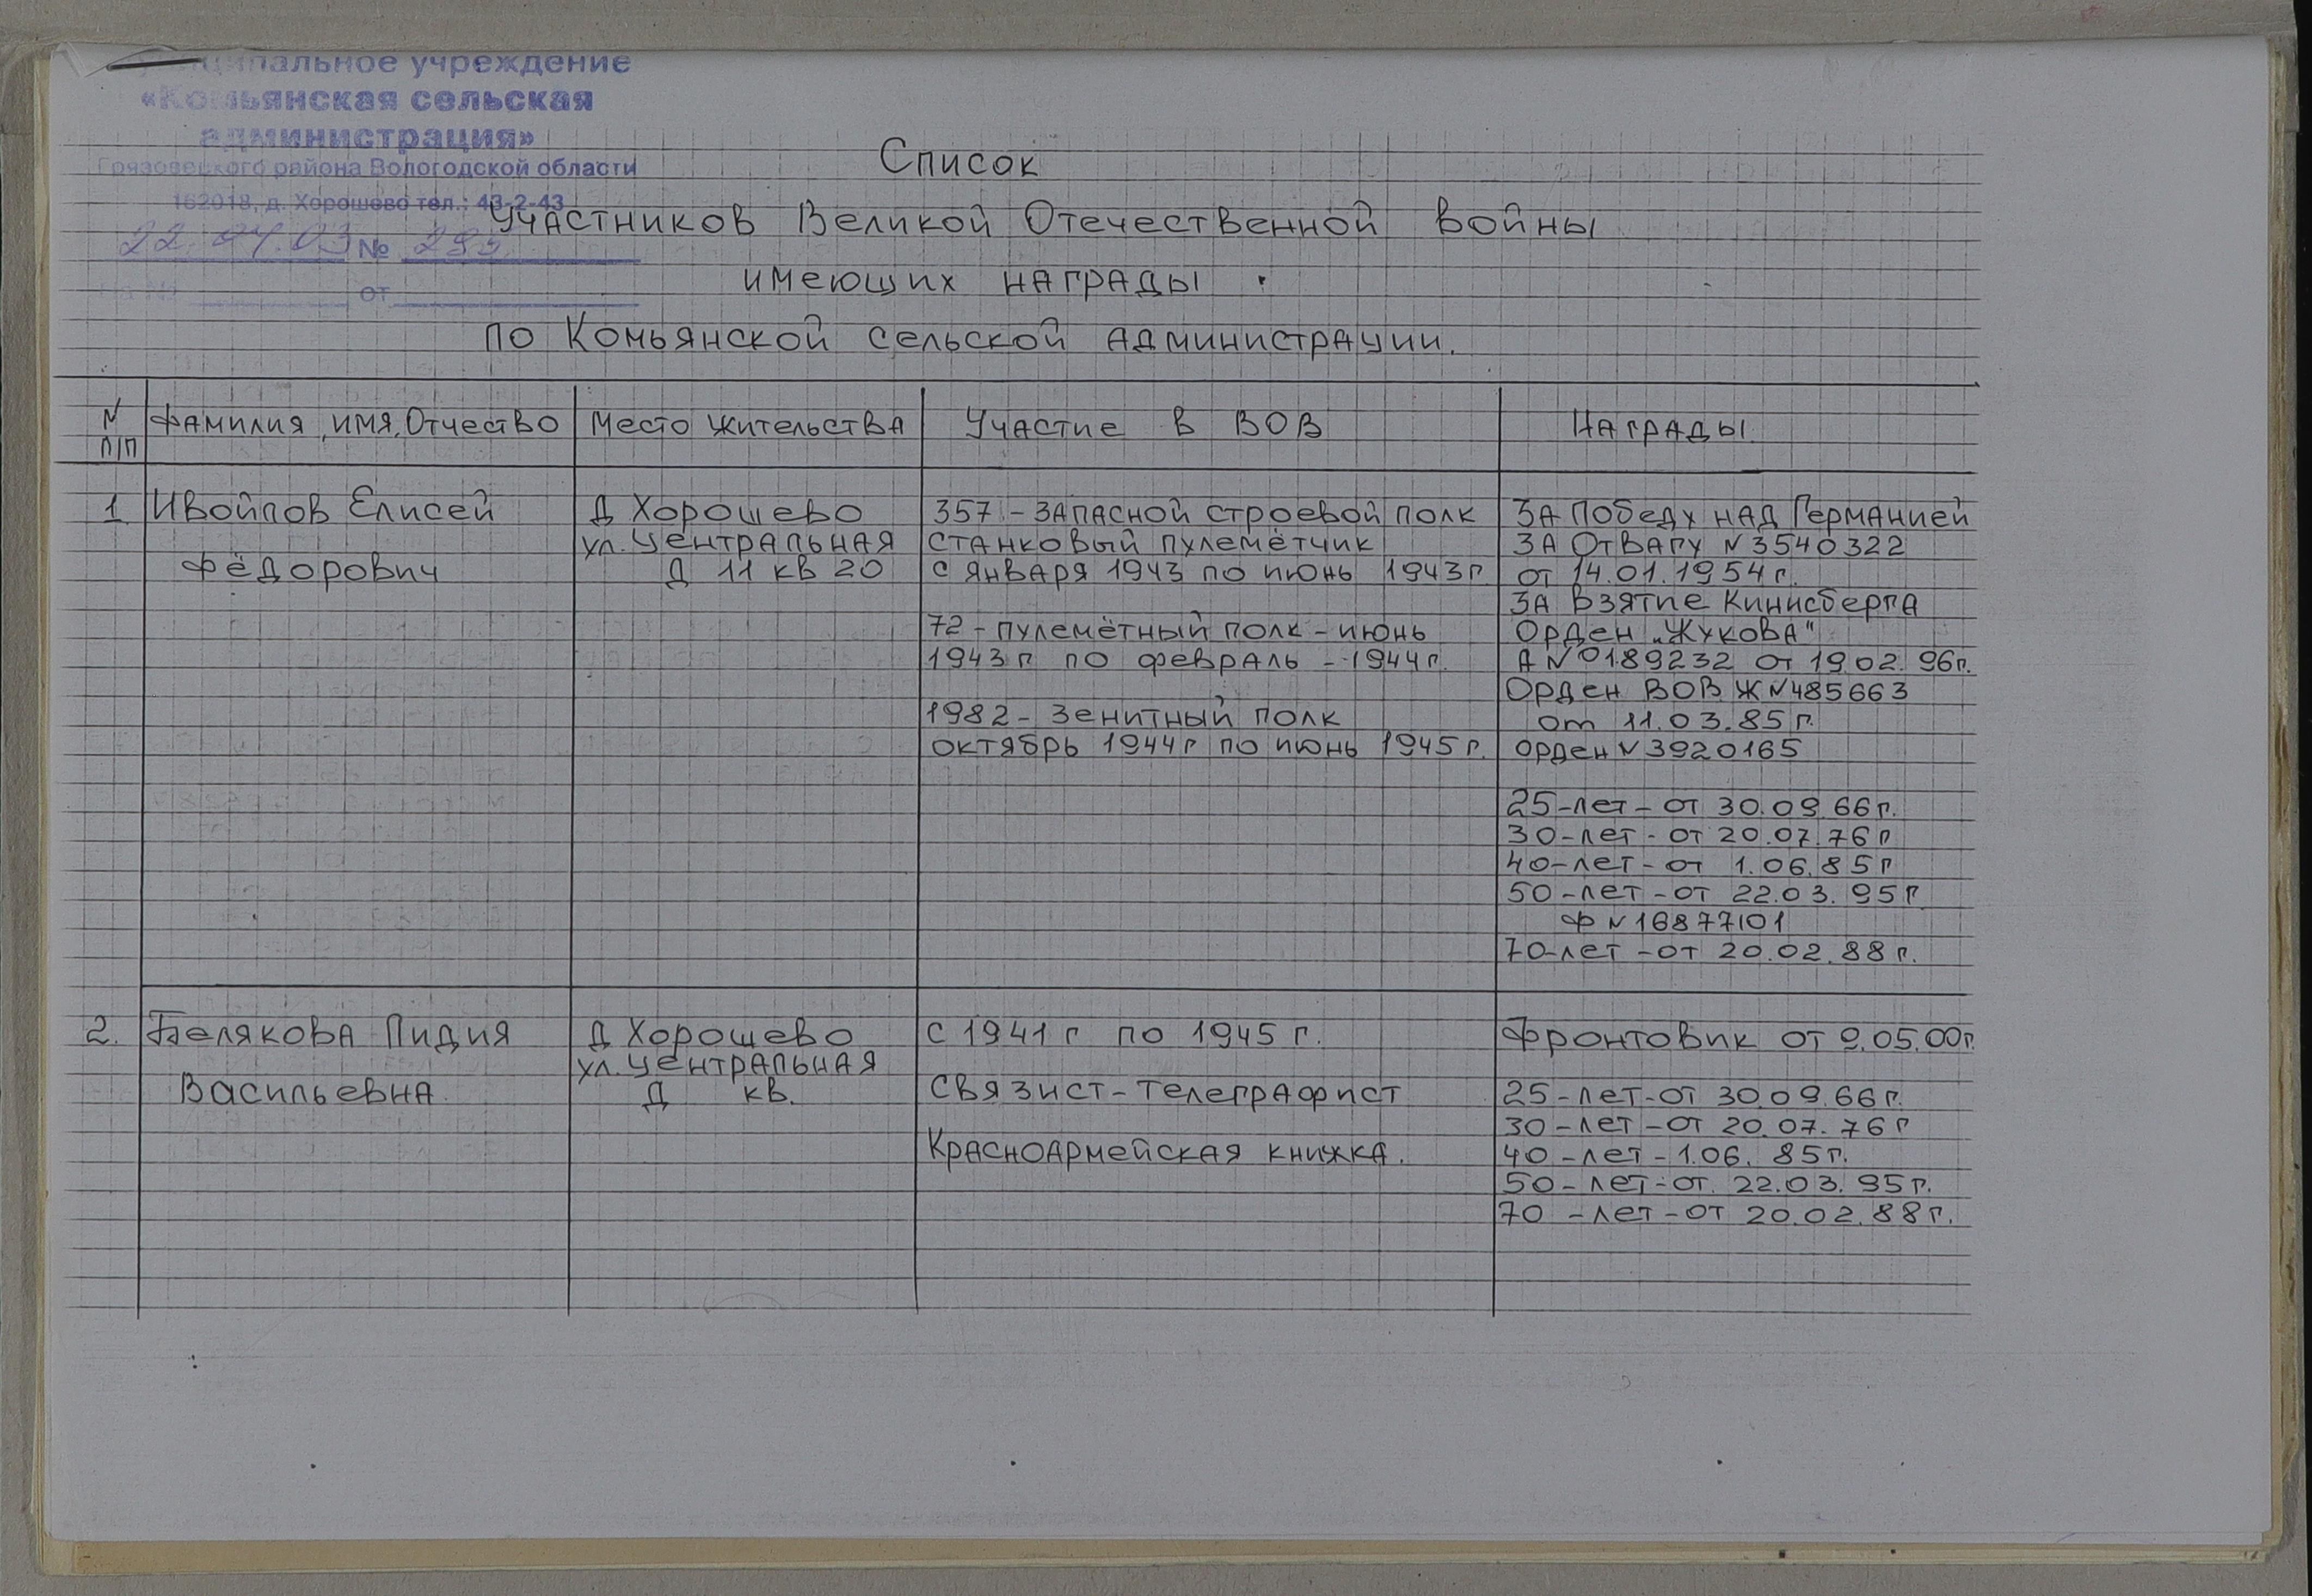 Муниципальное учреждение
«Комьянская сельская
администрация»
Грязовецкого района Вологодской области
162018, д. Хорошево тел.: 43-2-43
22.04.03 №
На № от
Список
Участников Великой Отечественной войны
имеющих награды
по Комьянской сельской администрации.
N п/п
Фамилия, имя, Отчество
Место жительства
Участие в ВОВ
Награды
1
Ивойлов Елисей
Фёдорович
Д Хорошево
ул. Центральная
Д 11 кв 20
357 - запасной строевой полк
станковый пулемётчик
с января 1943 по июнь 1943г
72 - пулемётный полк - июнь
1943г по февраль - 1944г.
1982 - Зенитный полк
октябрь 1944г по июнь 1945г.
За Победу над Германией
За Отвагу N 3540322
от 14.01.1954г.
За взятие Кинисберга
Орден „Жукова"
А N 0189232 от 19.02.96г.
Орден ВОВ Ж N 485663
от 11.03.85г.
орден N 3920165
25-лет - от 30.09.66г.
30-лет - от 20.07.76г
40-лет - от 1.06.85г
50-лет - от 22.03.95г
Ф N 16877101
70-лет - от 20.02.88г.
2.
Белякова Лидия
Васильевна
Д Хорошево
ул. Центральная
Д кв.
с 1941г по 1945г.
Связист-телеграфист
Красноармейская книжка.
Фронтовик от 9.05.00г.
25-лет-от 30.09.66г.
30-лет-от 20.07.76г
40-лет-1.06.85г.
50-лет-от. 22.03.95г.
70-лет-от 20.02.88г.